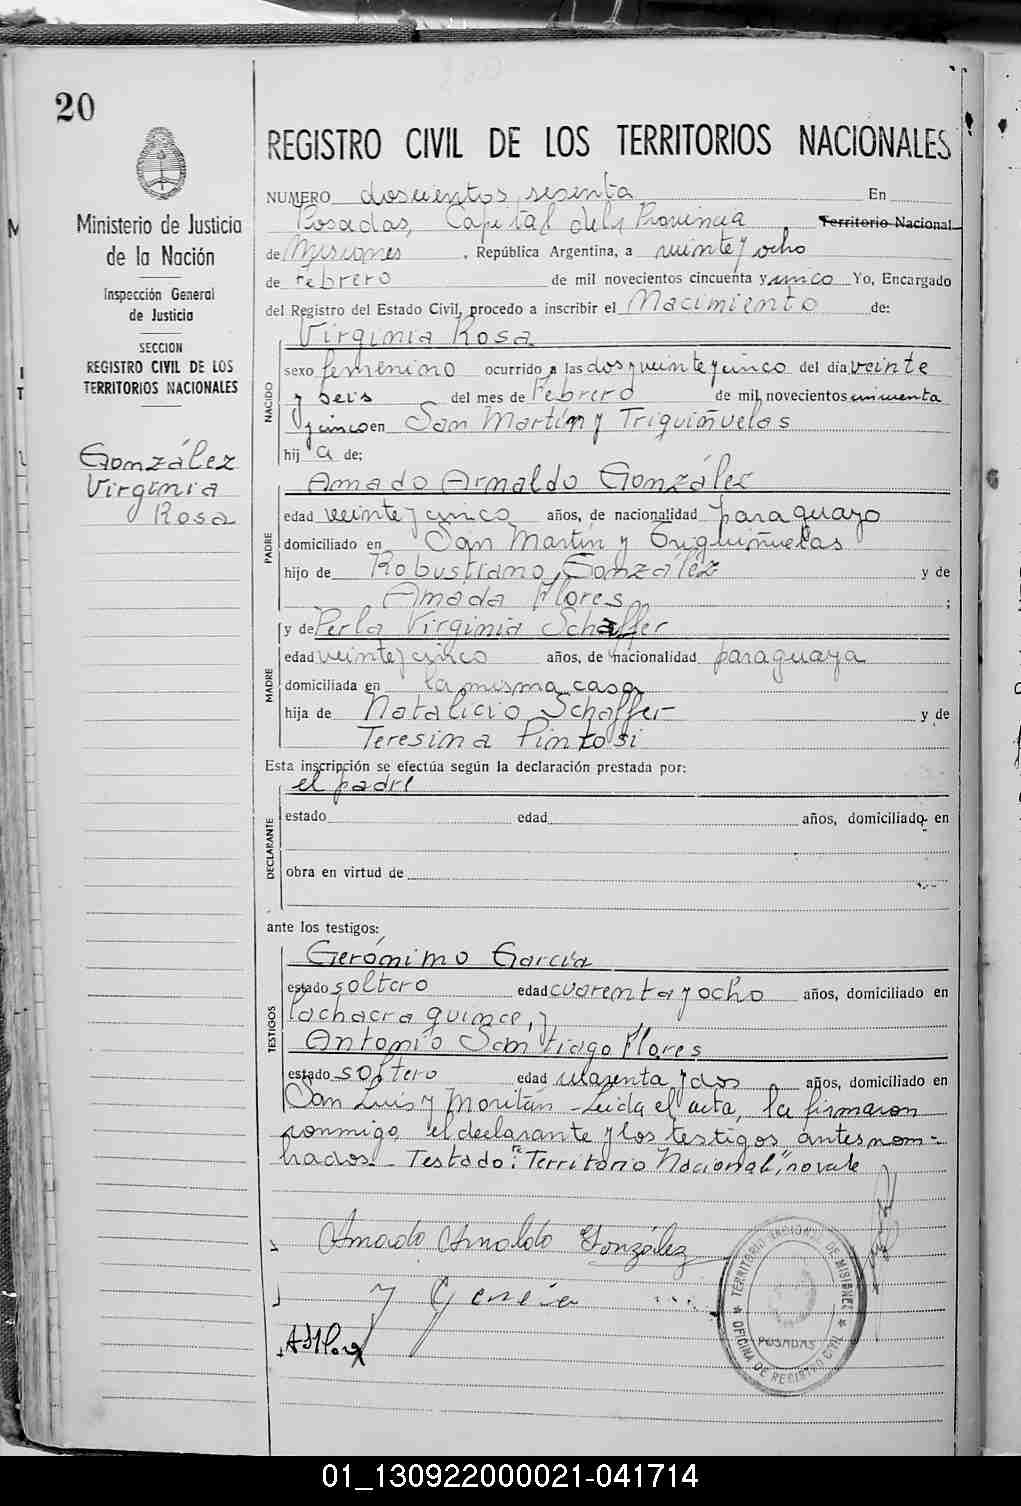 20
REGISTRO CIVIL DE LOS TERRITORIOS NACIONALES
Ministerio de Justicia
de la Nación
Inspección General
de Justicia
SECCION
REGISTRO CIVIL DE LOS
TERRITORIOS NACIONALES
González
Virginia
Rosa
NUMERO doscientos sesenta En
Posadas, Capital de la Provincia Territorio Nacional
de Misiones, República Argentina, a veinte y ocho
de Febrero de mil novecientos cincuenta y cinco Yo, Encargado
del Registro del Estado Civil, procedo a inscribir el Nacimiento de:
Virginia Rosa
NACIDO
sexo femenino ocurrido a las dos y veinte y cinco del día veinte
y seis del mes de Febrero de mil novecientos cincuenta
y cinco en San Martín y Triguiñuelas
hij a de:
Amado Arnaldo González
PADRE
edad veinte y cinco años, de nacionalidad paraguayo
domiciliado en San Martín y Triguiñuelas
hijo de Robustiano González y de
Amada Flores ;
y de Perla Virginia Schaffer
MADRE
edad veinte y cinco años, de nacionalidad paraguaya
domiciliada en la misma casa
hija de Natalicio Schaffer y de
Teresina Pintosi
Esta inscripción se efectúa según la declaración prestada por:
el padre
DECLARANTE
estado edad años, domiciliado en
obra en virtud de
ante los testigos:
Gerónimo García
TESTIGOS
estado soltero edad cuarenta y ocho años, domiciliado en
la chacra quince, y
Antonio Santiago Flores
estado soltero edad cuarenta y dos años, domiciliado en
San Luis y Moritán - Leída el acta, la firmaron
conmigo, el declarante y los testigos antes nom-
brados. - Testado: "Territorio Nacional", no vale
Amado Arnaldo González
J Garcia
A S Flores
TERRITORIO NACIONAL DE MISIONES
POSADAS
OFICINA DE REGISTRO CIVIL
01_130922000021-041714